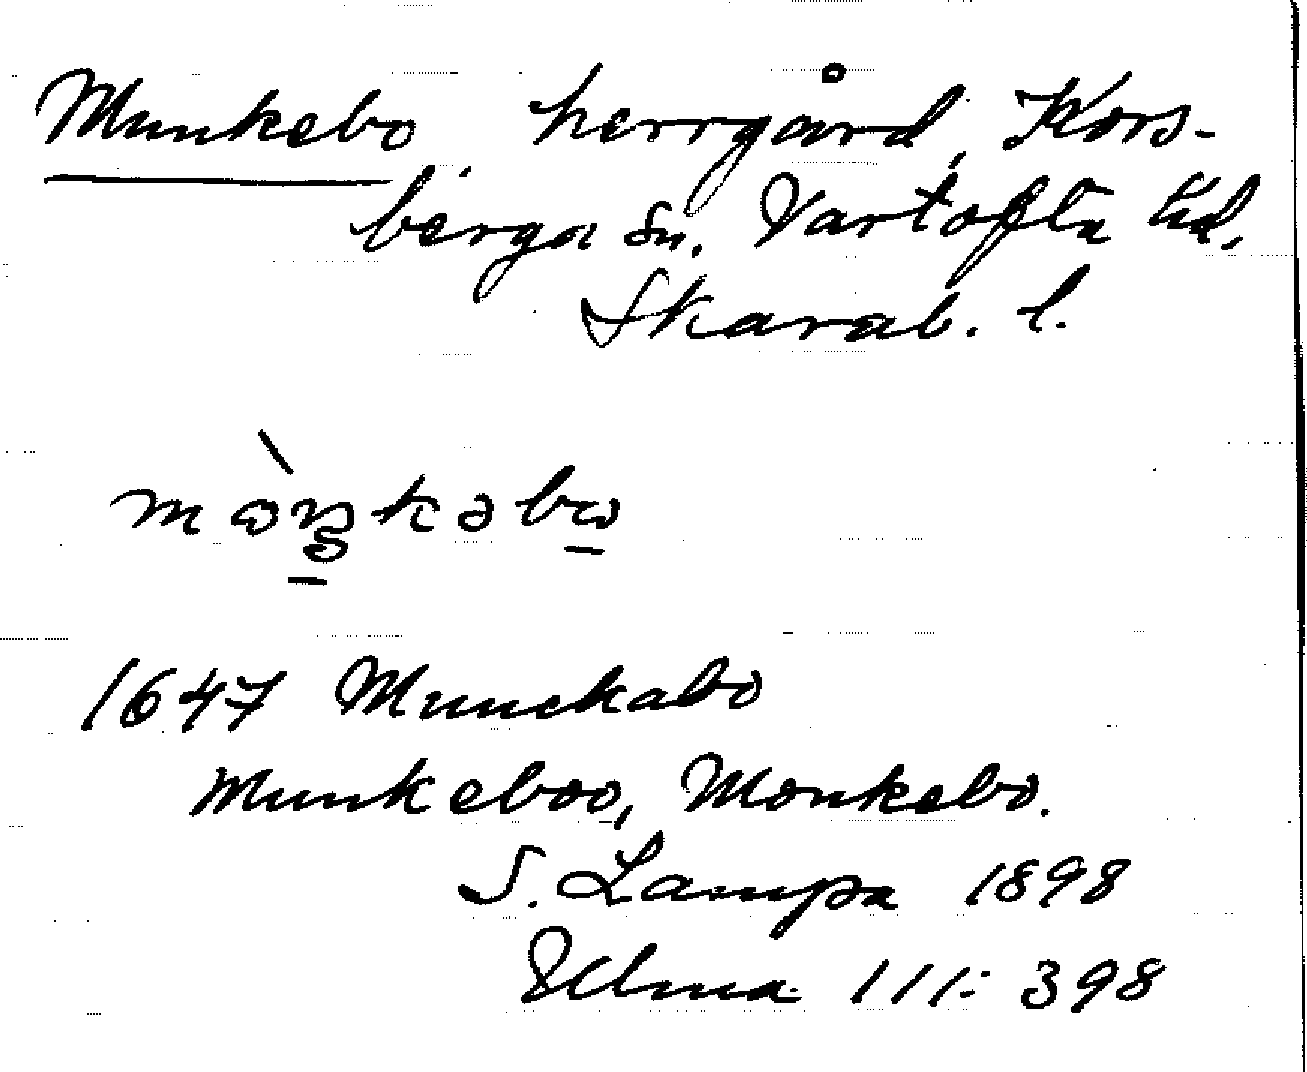 Munkebo herrgård, Kors-
berga sn. Vartofta hd,
Skarab. l.
mòŋkəbω
1647 Munckabo
Munkeboo, Monkebo.
S. Lampa 1898
Ulma 111: 398